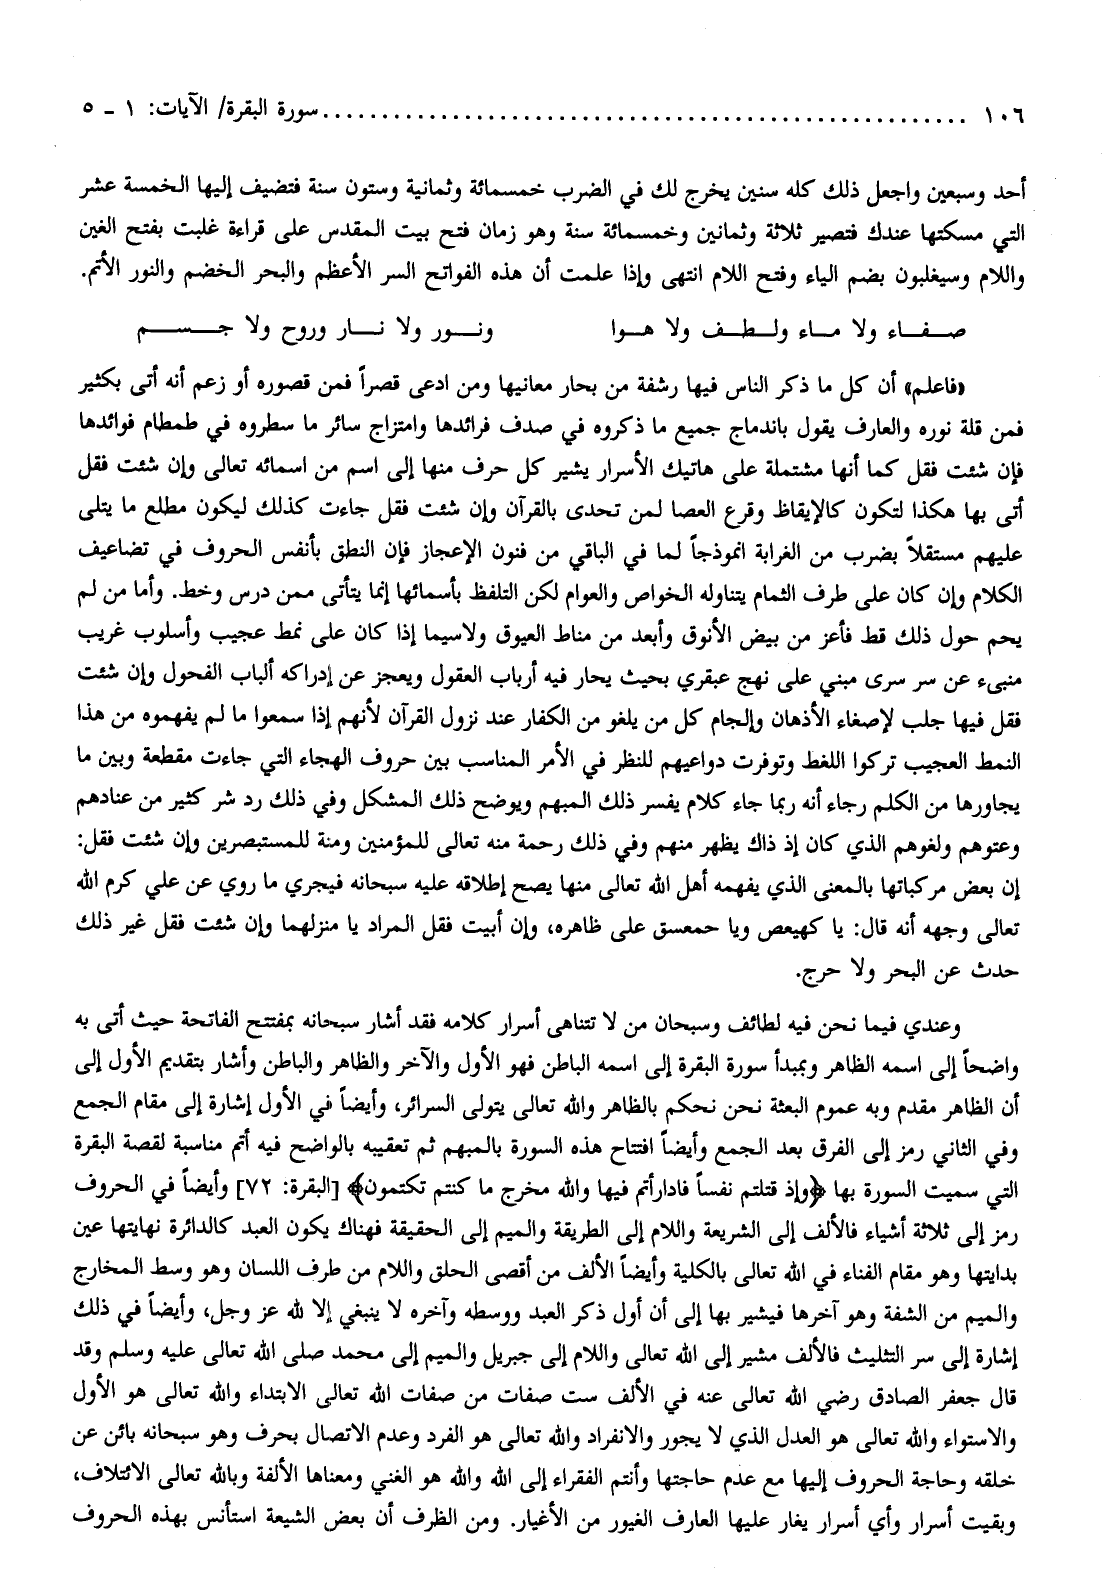 ١٠٦ ........................................................ سورة البقرة/ الآيات: ١ - ٥
أحد وسبعين واجعل ذلك كله سنين يخرج لك في الضرب خمسمائة وثمانية وستون سنة فتضيف إليها الخمسة عشر
التي مسكتها عندك فتصير ثلاثة وثمانين وخمسمائة سنة وهو زمان فتح بيت المقدس على قراءة غلبت بفتح الغين
واللام وسيغلبون بضم الياء وفتح اللام انتهى وإذا علمت أن هذه الفواتح السر الأعظم والبحر الخضم والنور الأتم.
صفـاء ولا مـاء ولـطـف ولا هـوا ونـور ولا نـار وروح ولا جـسـم
«فاعلم» أن كل ما ذكر الناس فيها رشفة من بحار معانيها ومن ادعى قصراً فمن قصوره أو زعم أنه أتى بكثير
فمن قلة نوره والعارف يقول باندماج جميع ما ذكروه في صدف فرائدها وامتزاج سائر ما سطروه في طمطام فوائدها
فإن شئت فقل كما أنها مشتملة على هاتيك الأسرار يشير كل حرف منها إلى اسم من اسمائه تعالى وإن شئت فقل
أتى بها هكذا لتكون كالإيقاظ وقرع العصا لمن تحدى بالقرآن وإن شئت فقل جاءت كذلك ليكون مطلع ما يتلى
عليهم مستقلاً بضرب من الغرابة انموذجاً لما في الباقي من فنون الإعجاز فإن النطق بأنفس الحروف في تضاعيف
الكلام وإن كان على طرف الثمام يتناوله الخواص والعوام لكن التلفظ بأسمائها إنما يتأتى ممن درس وخط. وأما من لم
يحم حول ذلك قط فأعز من بيض الأنوق وأبعد من مناط العيوق ولاسيما إذا كان على نمط عجيب وأسلوب غريب
منبىء عن سر سرى مبني على نهج عبقري بحيث يحار فيه أرباب العقول ويعجز عن إدراكه ألباب الفحول وإن شئت
فقل فيها جلب لإصغاء الأذهان وإلجام كل من يلغو من الكفار عند نزول القرآن لأنهم إذا سمعوا ما لم يفهموه من هذا
النمط العجيب تركوا اللغط وتوفرت دواعيهم للنظر في الأمر المناسب بين حروف الهجاء التي جاءت مقطعة وبين ما
يجاورها من الكلم رجاء أنه ربما جاء كلام يفسر ذلك المبهم ويوضح ذلك المشكل وفي ذلك رد شر كثير من عنادهم
وعتوهم ولغوهم الذي كان إذ ذاك يظهر منهم وفي ذلك رحمة منه تعالى للمؤمنين ومنة للمستبصرين وإن شئت فقل:
إن بعض مركباتها بالمعنى الذي يفهمه أهل الله تعالى منها يصح إطلاقه عليه سبحانه فيجري ما روي عن علي كرم الله
تعالى وجهه أنه قال: يا كهيعص ويا حمعسق على ظاهره، وإن أبيت فقل المراد يا منزلهما وإن شئت فقل غير ذلك
حدث عن البحر ولا حرج.
وعندي فيما نحن فيه لطائف وسبحان من لا تتناهى أسرار كلامه فقد أشار سبحانه بمفتتح الفاتحة حيث أتى به
واضحاً إلى اسمه الظاهر وبمبدأ سورة البقرة إلى اسمه الباطن فهو الأول والآخر والظاهر والباطن وأشار بتقديم الأول إلى
أن الظاهر مقدم وبه عموم البعثة نحن نحكم بالظاهر والله تعالى يتولى السرائر، وأيضاً في الأول إشارة إلى مقام الجمع
وفي الثاني رمز إلى الفرق بعد الجمع وأيضاً افتتاح هذه السورة بالمبهم ثم تعقيبه بالواضح فيه أتم مناسبة لقصة البقرة
التي سميت السورة بها ﴿وإذ قتلتم نفساً فادارأتم فيها والله مخرج ما كنتم تكتمون﴾ [البقرة: ٧٢] وأيضاً في الحروف
رمز إلى ثلاثة أشياء فالألف إلى الشريعة واللام إلى الطريقة والميم إلى الحقيقة فهناك يكون العبد كالدائرة نهايتها عين
بدايتها وهو مقام الفناء في الله تعالى بالكلية وأيضاً الألف من أقصى الحلق واللام من طرف اللسان وهو وسط المخارج
والميم من الشفة وهو آخرها فيشير بها إلى أن أول ذكر العبد ووسطه وآخره لا ينبغي إلا لله عز وجل، وأيضاً في ذلك
إشارة إلى سر التثليث فالألف مشير إلى الله تعالى واللام إلى جبريل والميم إلى محمد صلى الله تعالى عليه وسلم وقد
قال جعفر الصادق رضي الله تعالى عنه في الألف ست صفات من صفات الله تعالى الابتداء والله تعالى هو الأول
والاستواء والله تعالى هو العدل الذي لا يجور والانفراد والله تعالى هو الفرد وعدم الاتصال بحرف وهو سبحانه بائن عن
خلقه وحاجة الحروف إليها مع عدم حاجتها وأنتم الفقراء إلى الله والله هو الغني ومعناها الألفة وبالله تعالى الائتلاف،
وبقيت أسرار وأي أسرار يغار عليها العارف الغيور من الأغيار. ومن الظرف أن بعض الشيعة استأنس بهذه الحروف